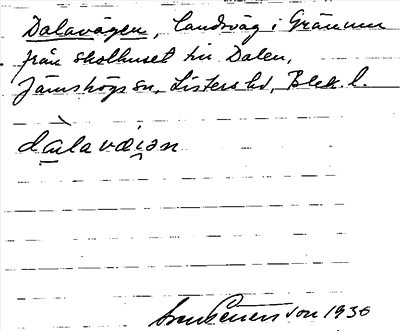 Dalavägen, landsväg i Gränum
från skolhuset till Dalen,
Jämshögs sn, Listers hd, Blek. l.
dàlavæi̯ən
1930